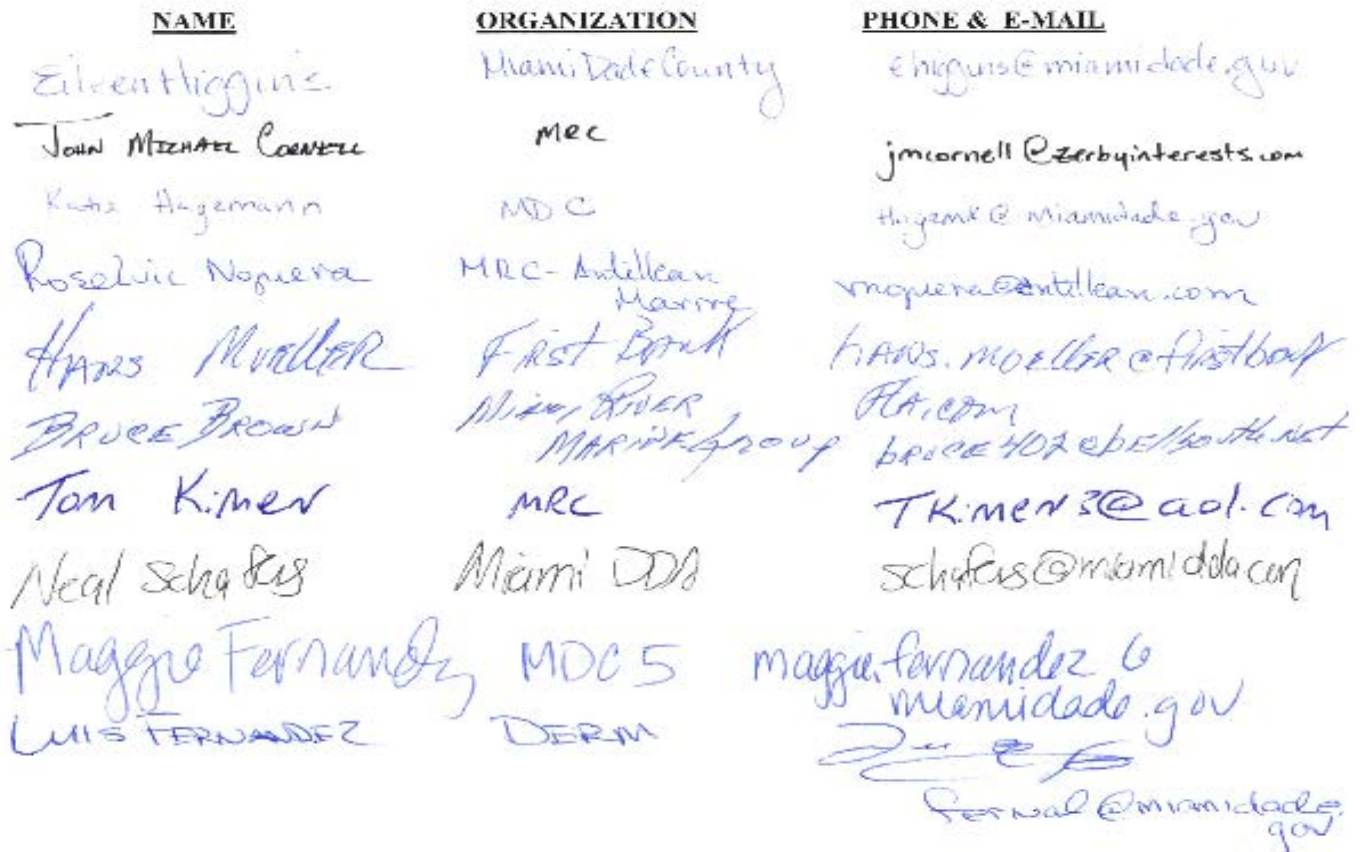 NAME ORGANIZATION PHONE & E-MAIL
Eileen Higgins Miami Dade County ehiggins@miamidade.gov
JOHN MICHAEL CORNELL MRC jmcornell@zerbyinterests.com
Katie Hagemann MDC Hagemk@miamidade.gov
Roselvic Noguera MRC - Antillean rnoguera@antillean.com
Marine
HANS MUELLER FIRST BANK HANS.MUELLER@firstbank
BRUCE BROWN MIAMI RIVER FLA.com
MARINE GROUP bruce402@bellsouth.net
Tom Kimen MRC TKimen3@aol.com
Neal Schafers Miami DDA schafers@miamidda.com
Maggie Fernandez MDC5 maggie.fernandez@
miamidade.gov
LUIS FERNANDEZ DERM
fernal@miamidade.
gov